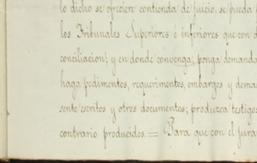 lo dicho se ofreciere contienda de juicio, se pueda
los Tribunales Superiores é inferiores que con d
conciliacion; y en donde convenga, ponga demanda
haga pedimentos, requerimientos, embargos y dema
sente escritos y otros documentos; produzca testigos
contrario producidos = Para que con el jura